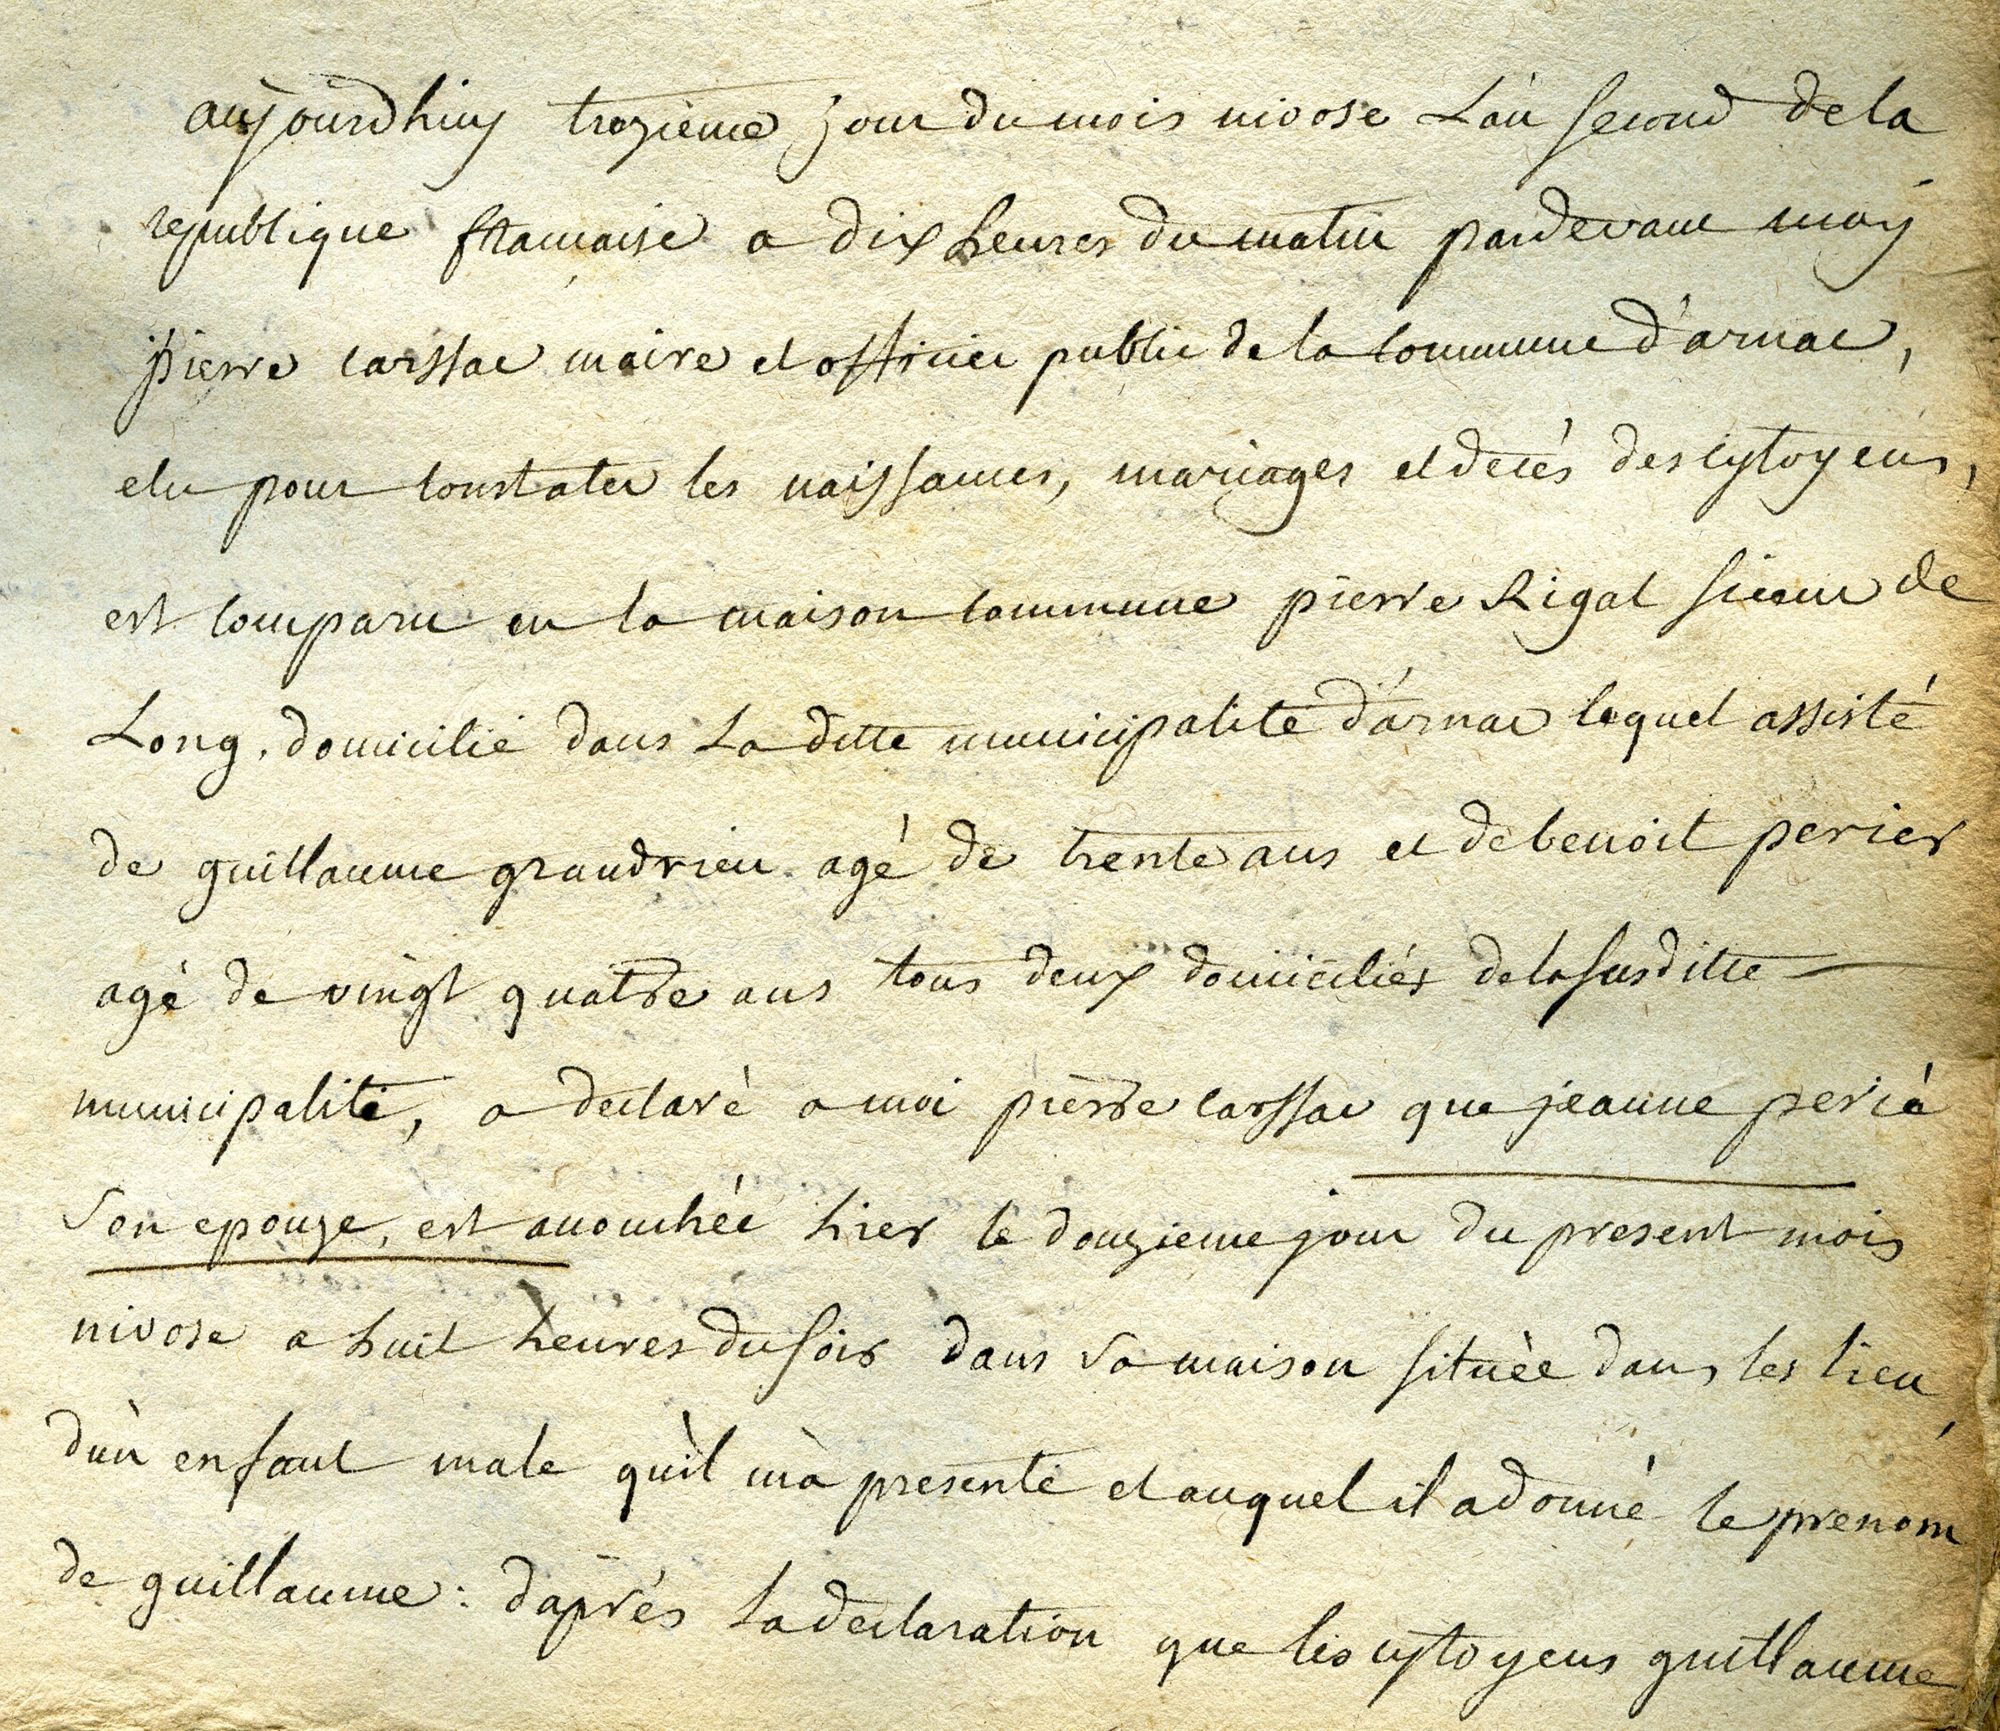 aujourdhuy trezieme jour du mois nivose L'an second de la
republique francaise a dix heures du matin pardevant moy
pierre carssac maire et officier public de la commune d'arnac,
elu pour constater les naissances, mariages et decés des cytoyens,
est comparu en la maison commune pierre Rigal sieur de
Long, domicilié dans La ditte municipalité d'arnac lequel assisté
de guillaume grandrieu agé de trente ans et de benoit perier
agé de vingt quatre ans tous deux domiciliés de la susditte
municipalité, a declaré a moi pierre carssac que jeanne perié
son epouze, est accouchée hier le douzieme jour du present mois
nivose a huit heures du soir dans sa maison située dans les lieu
d'un enfant male qu'il m'a presenté et auquel il a donné le prenom
de guillaume : d'aprés La declaration que les cytoyens guillaume